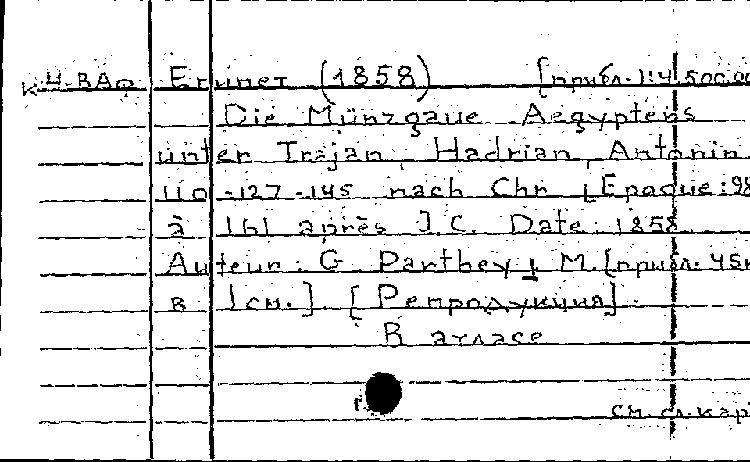 К Ч-ВАф Египет (1858) [прибл.]:4.500.00
Die Münzgaue Aegyptens
unter Trajan, Hadrian, Antonin
110-127-145 nach Chr. [Epoque:98
à 161 après J.C. Date: 1858
Auteur: G. Parthey]. М.[прибл: 45к
в 1см.]. [Репродукция].
В атласе
см. сл. кар